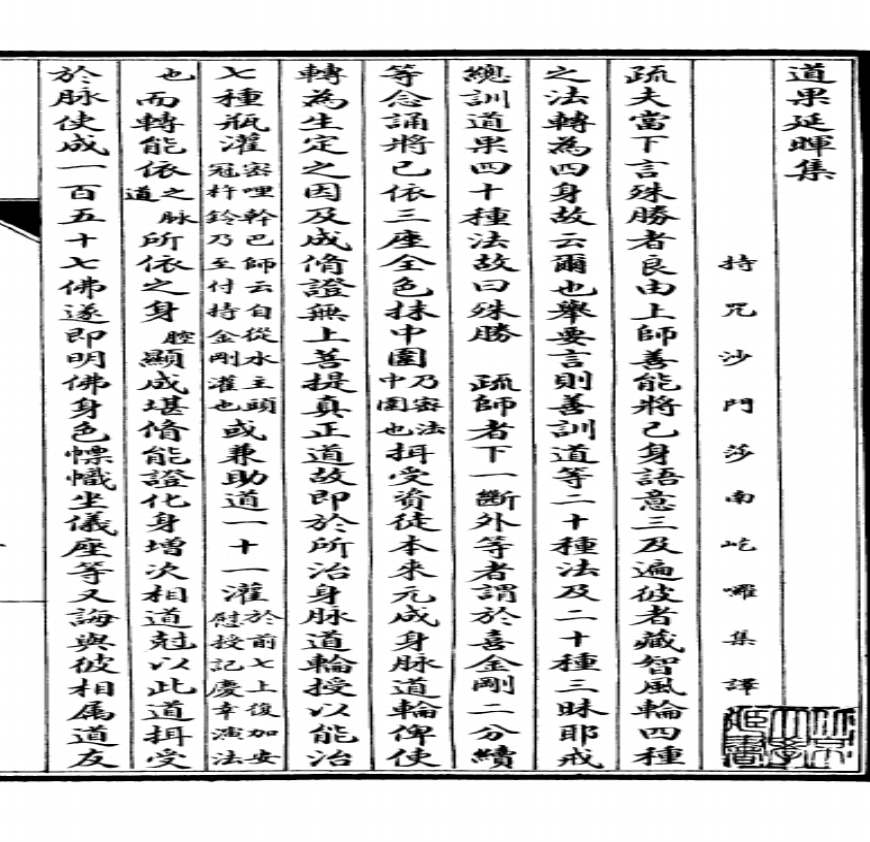 道果延暉集
持咒沙門莎南屹囉集譯
疏夫當下言殊勝者良由上師善能將己身語意三及遍彼者藏智風輪四種
之法轉為四身故云爾也舉要言則善訓道等二十種法及二十種三昧耶戒
總訓道果四十種法故曰殊勝　疏師者下一斷外等者謂於喜金剛二分續
等念誦將已依三座全色抹中圍乃密法中圍也揖受資徒本來元成身脉道輪俾使
轉為生定之因及成脩證無上菩提真正道故即於所治身脉道輪授以能治
七種瓶灌密哩幹巴師云自從水主頭冠杵鈴乃至付持金剛灌也或兼助道一十一灌於前七上復加安慰授記慶幸演法
也而轉能依之脉道所依之身腔顯成堪脩能證化身增次相道尅以此道揖受
於脉使成一百五十七佛遂即明佛身色幖幟坐儀座等又誨與彼相属道友